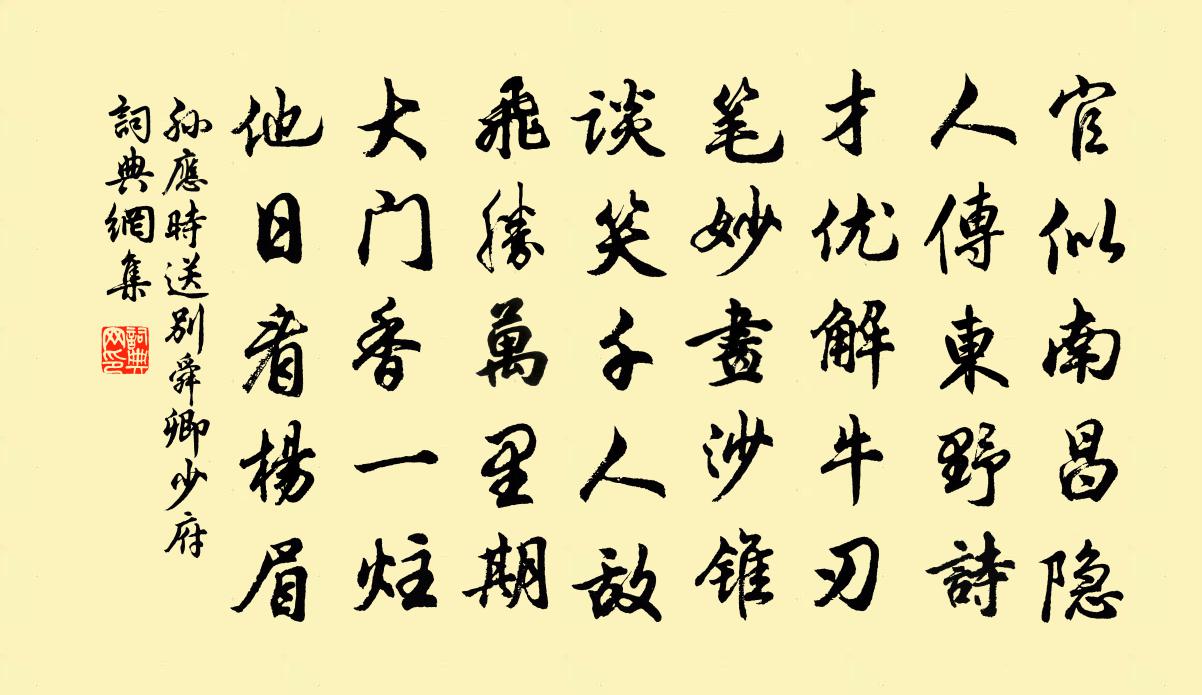 官似南昌隐
人傳東野詩
才优解牛刃
笔妙畫沙锥
谈笑千人敌
飛勝萬里期
大门香一炷
他日看楊眉
孙應時送别舜卿少府
詞典網集
詞典網印